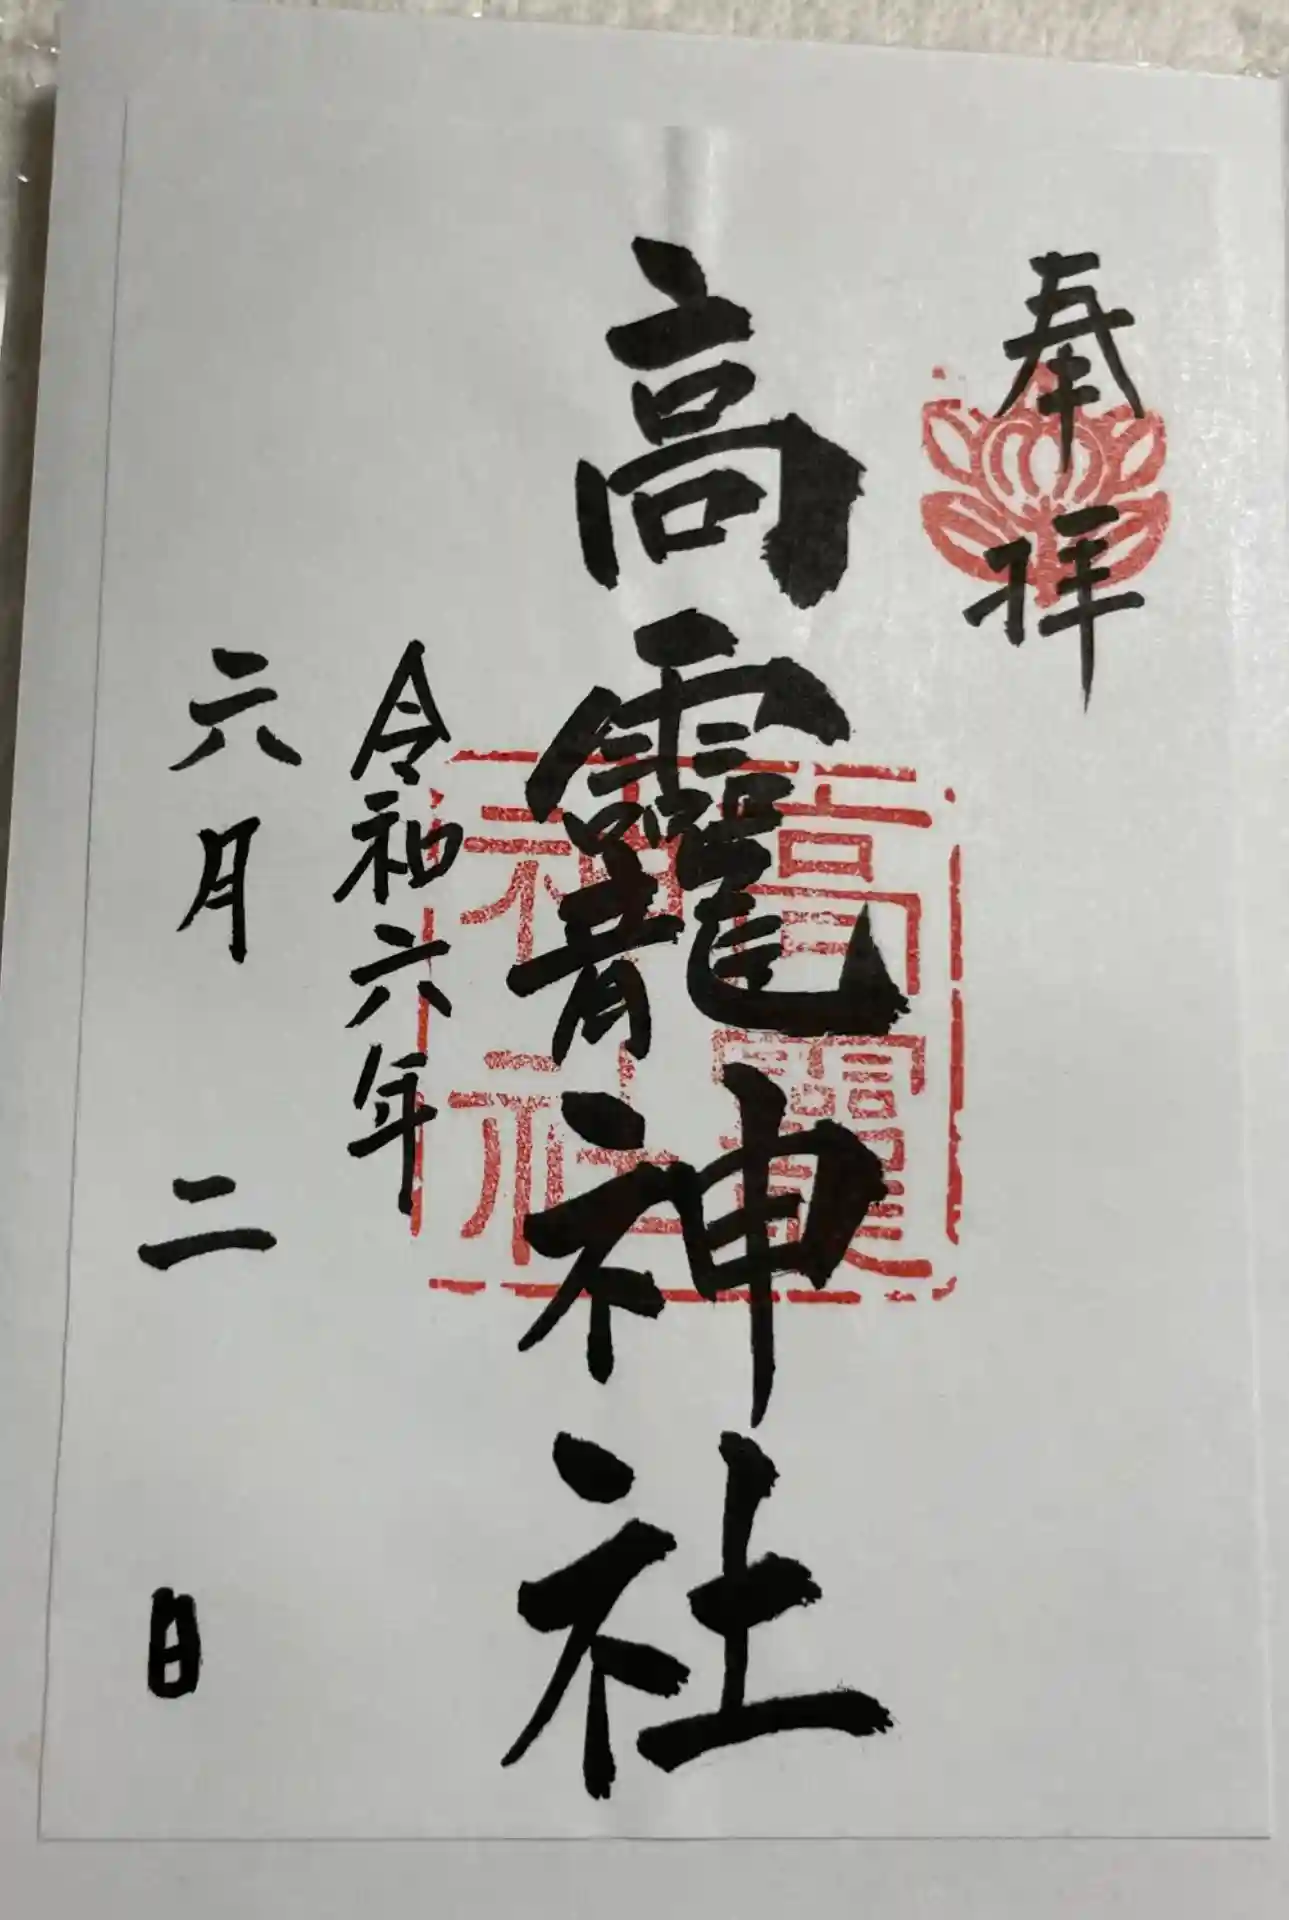 奉拝
高龗神社
高龗
神社
令和六年
六月二日